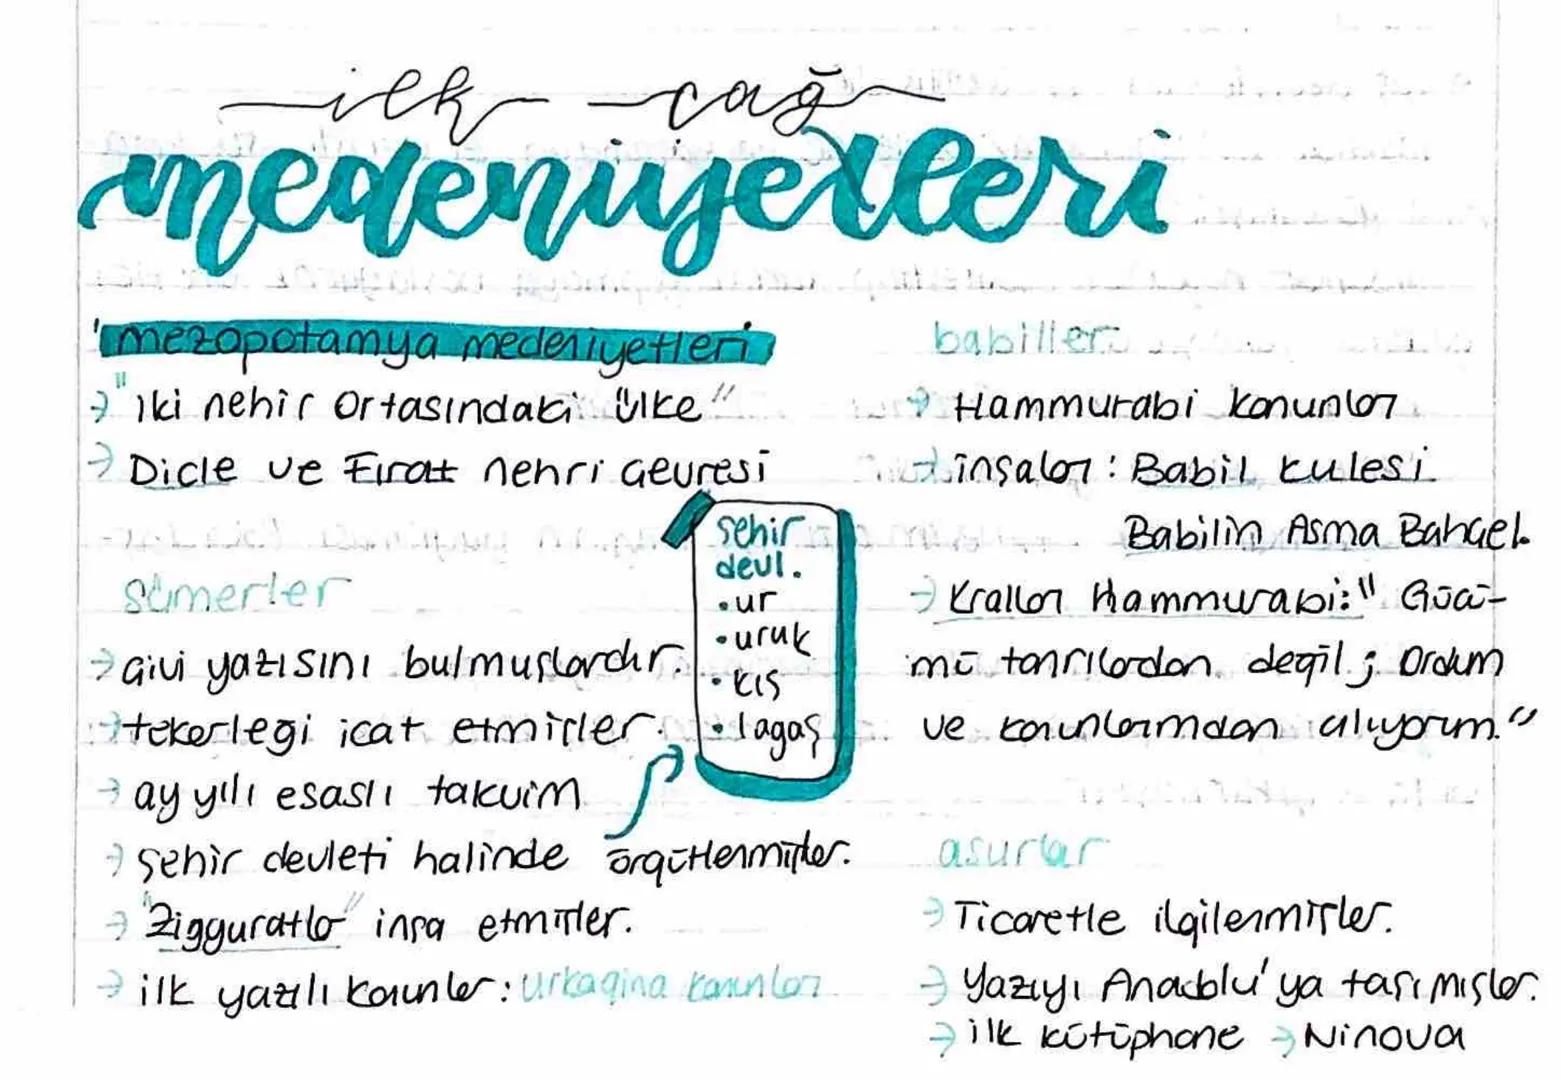 ilk çağ
medeniyetleri
"mezopotamya medeniyetleri
→ "iki nehir ortasındaki ülke"
→ Dicle ve Fırat nehri çevresi
sümerler
→ çivi yazısını bulmuşlardır.
→ tekerleği icat etmişler.
→ ay yılı esaslı takvim
→ şehir devleti halinde örgütlenmişler.
→ "Zigguratlar" inşa etmişler.
→ ilk yazılı kanunlar: urkagina kanunları
şehir
devl.
• ur
• uruk
• kış
• lagaş
babiller
→ Hammurabi kanunları
→ inşaları: Babil kulesi
Babilin Asma Bahçel.
→ Kralları Hammurabi: "Gücü-
mü tanrılardan değil; Ordum
ve kanunlarımdan alıyorum."
asurlar
→ Ticaretle ilgilenmişler.
→ Yazıyı Anadolu'ya taşımışlar.
→ ilk kütüphane → Ninova